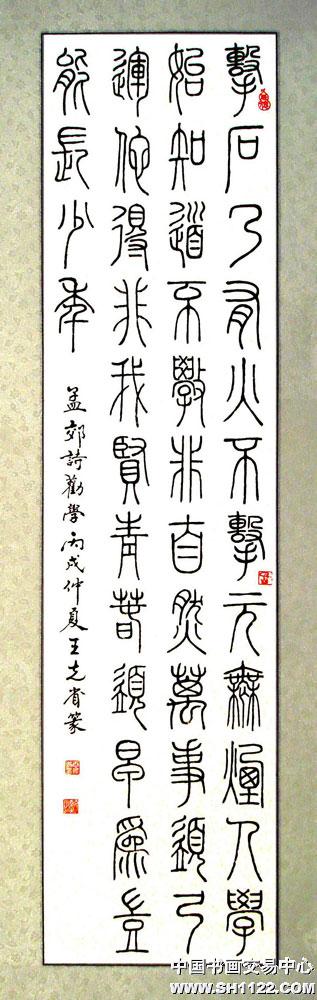 擊石乃有火不擊元無煙人學
始知道不學非自然萬事須己
運佗得非我賢青春須早爲豈
能長少年
孟郊詩勸學丙戌仲夏王篆
中国书画交易中心
www.SH1122.com